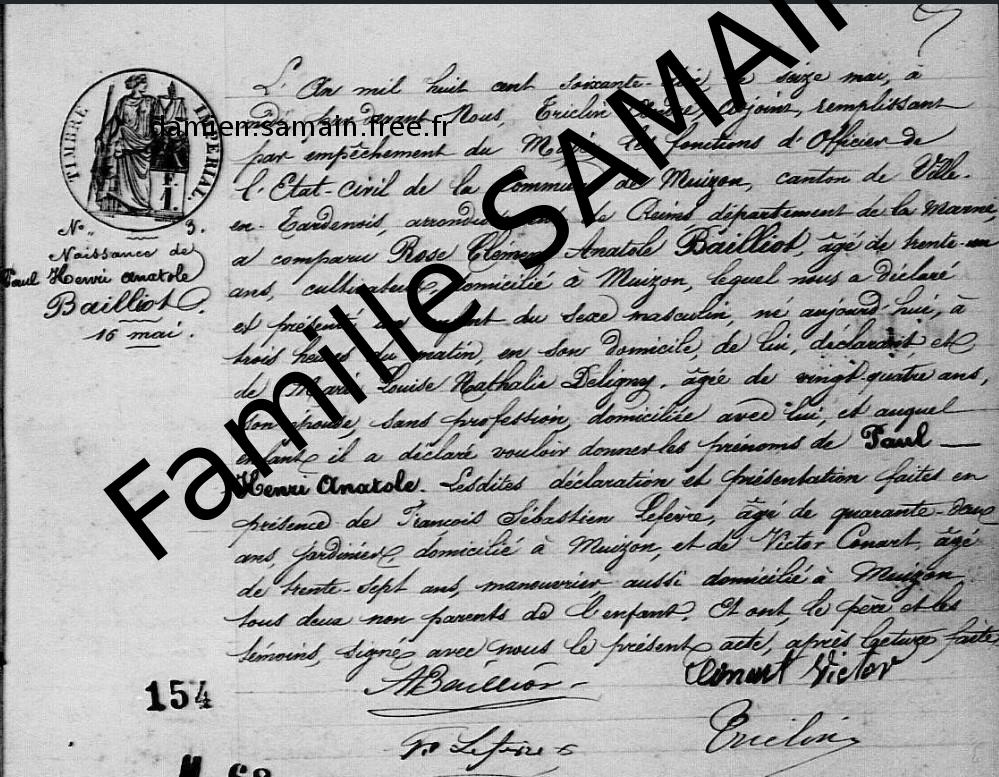 L'An mil huit cent soixante-dix le seize mai, à
midi, par devant Nous, Triclin adjoint, remplissant
par empêchement du Maire les fonctions d'Officier de
l'Etat-civil de la Commune de Muizon, canton de Ville-
en-Tardenois, arrondissement de Reims département de la Marne,
a comparu Rose Clément Anatole Bailliot, âgé de trente-un
ans, cultivateur, domicilié à Muizon, lequel nous a déclaré
et présenté un enfant du sexe masculin, né aujourd'hui, à
trois heures du matin, en son domicile, de lui, déclarant, et
de Marie Louise Nathalie Deligny, âgée de vingt-quatre ans,
son épouse, sans profession, domiciliée avec lui, et auquel
enfant il a déclaré vouloir donner les prénoms de Paul
Henri Anatole. Lesdites déclaration et présentation faites en
présence de François Sébastien Lefèvre, âgé de quarante-deux
ans, jardinier domicilié à Muizon, et de Victor Conart, âgé
de trente-sept ans, manouvrier aussi domicilié à Muizon,
tous deux non parents de l'enfant. Et ont, le père et les
témoins, signé avec nous le présent acte, après lecture faite.
ABailliot
Conart Victor
Lefèvre
Triclin
TIMBRE IMPERIAL.
1.
N° 3.
Naissance de
Paul Henri Anatole
Bailliot.
16 mai.
154
damien.samain.free.fr
Famille SAMAIN